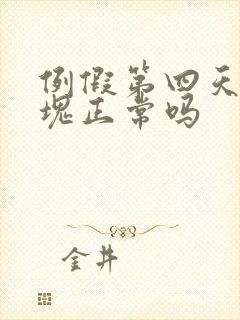 例假第四天
块正常吗
金井